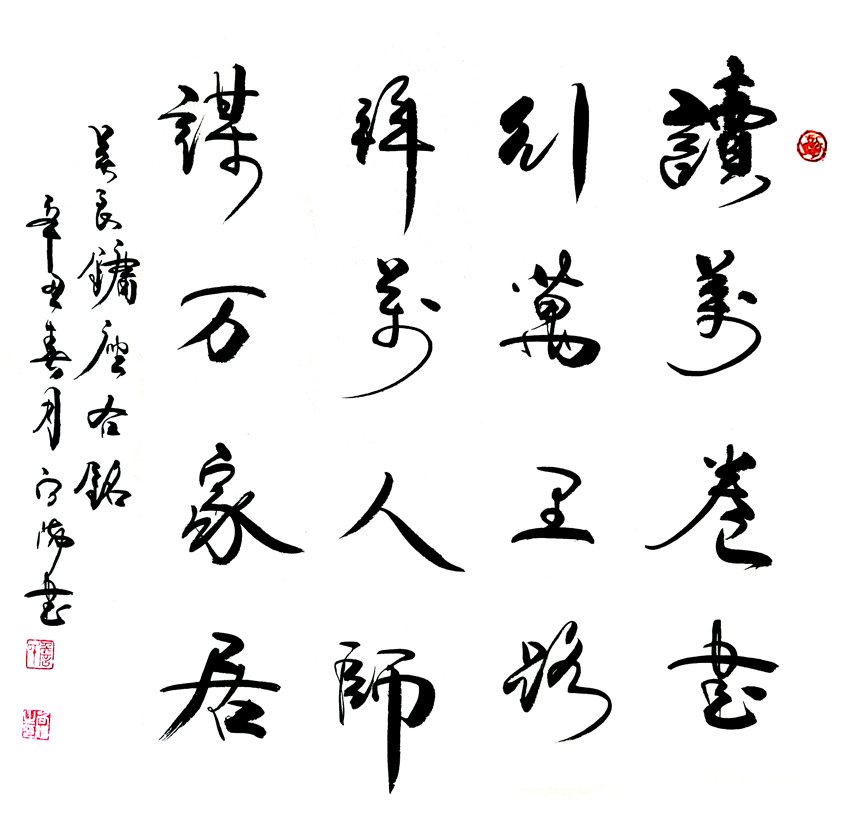 讀萬卷書
行萬里路
拜萬人師
謀万家居
吳良鏞座右銘
辛丑春月 書